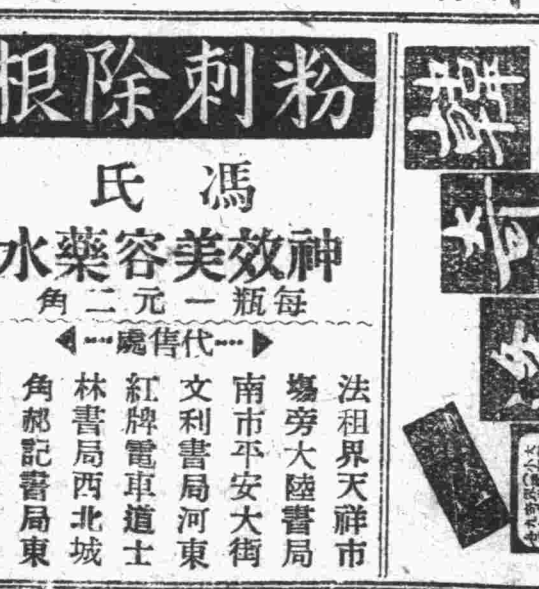 粉刺除根
馮氏
神效美容藥水
每瓶一元二角
代售處
法租界天祥市
塲旁大陸書局
南市平安大街
文利書局河東
紅牌電車道士
林書局西北城
角郝記書局東